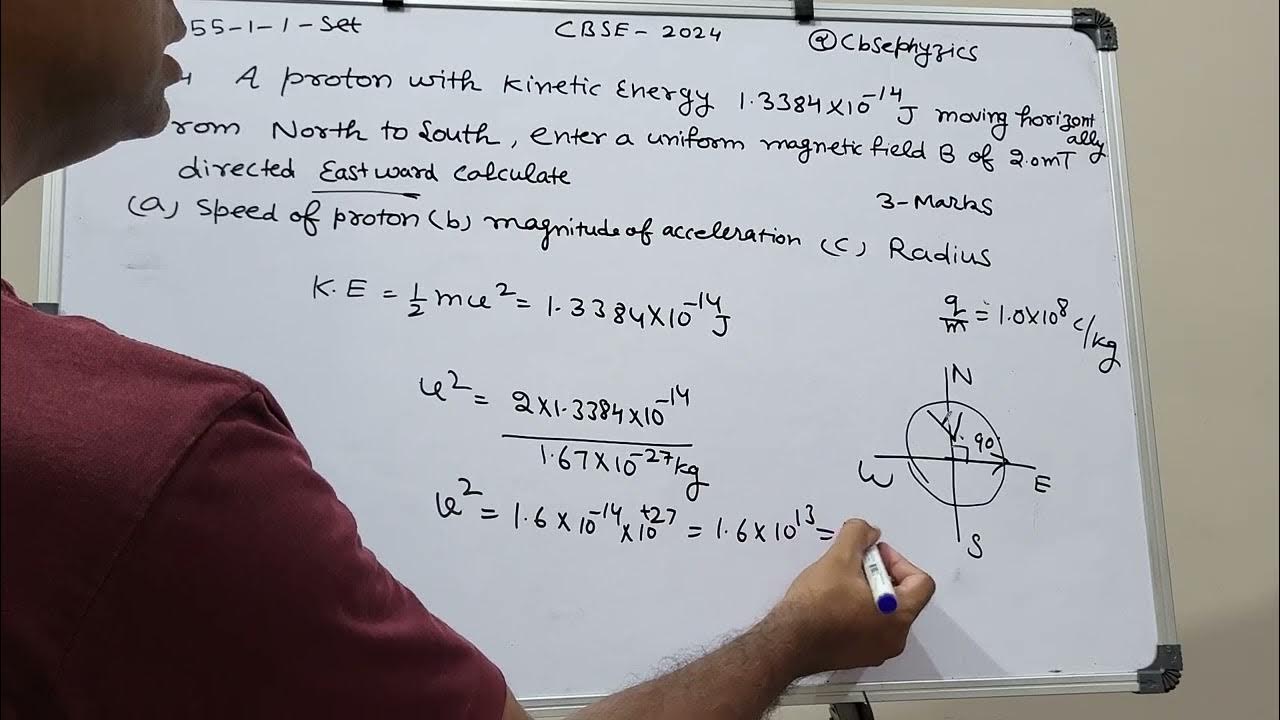 55-1-1-Set
CBSE-2024
@Cbsephyzics
A proton with Kinetic Energy 1.3384×10⁻¹⁴J moving horizontally
rom North to South, enter a uniform magnetic field B of 2.0mT
directed Eastward calculate
3-Marks
(a) Speed of proton (b) magnitude of acceleration (c) Radius
K.E = ½ mv² = 1.3384×10⁻¹⁴J
q/m = 1.0×10⁸ C/kg
v² = 2×1.3384×10⁻¹⁴
1.67×10⁻²⁷kg
v² = 1.6×10⁻¹⁴×10⁺²⁷ = 1.6×10¹³ =
N
V
90
W
E
S